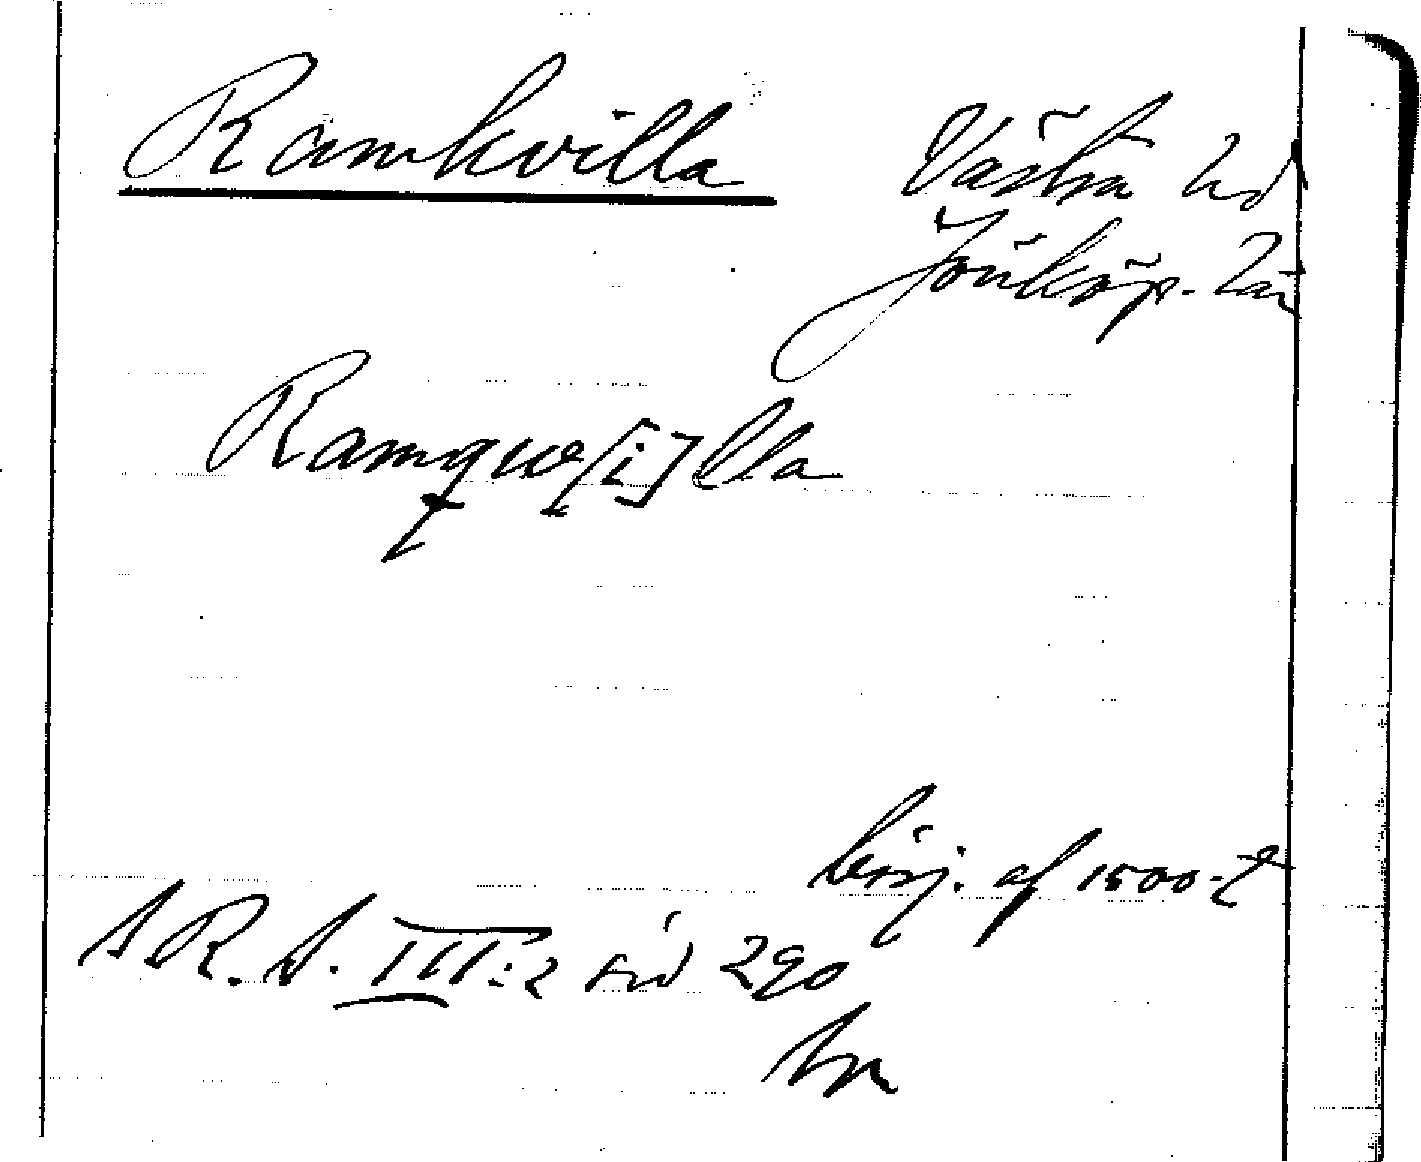 Ramkvilla
Västra hd
Jönköp. län
Ramque[i]lla
börj. af 1500-t
S R. S. III:2 sid 290